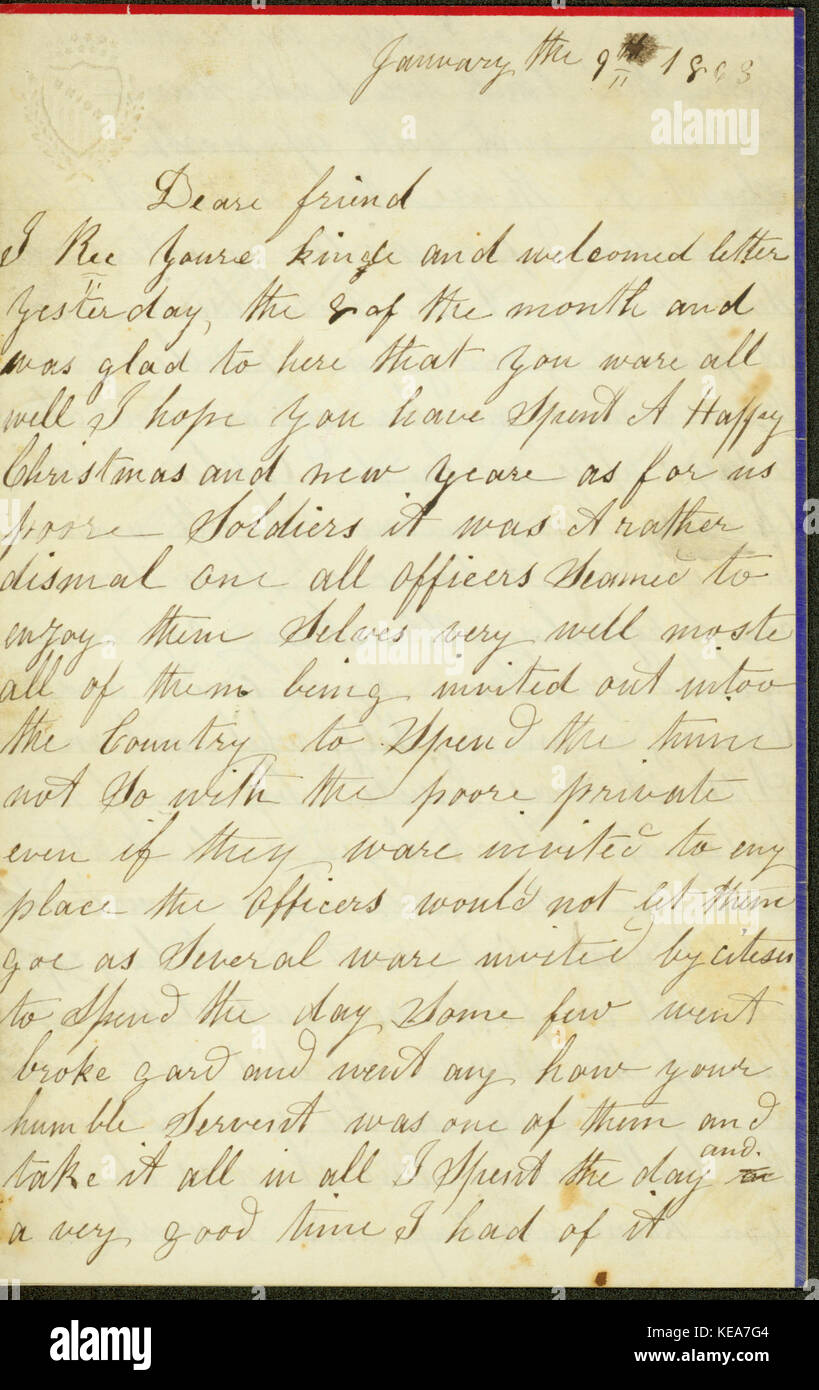 UNION
January the 9th 1863
Deare friend
I Rec youre kinde and welcomed letter
yesterday, the 8 of the month and
was glad to here that you ware all
well I hope you have Spent A Happy
Christmas and new yeare as for us
poore Soldiers it was A rather
dismal one all officers Seamed to
enjoy them Selves very well moste
all of them being invited out intoo
the Country to Spend the time
not So with the poore private
even if they ware invited to eny
place the Officers would not let them
goe as Several ware invited by citesen
to Spend the day Some few went
broke gard and went any how your
humble Servent was one of them and
take it all in all I Spent the day and.
a very good time I had of it
alamy
alamy stock photo
KEA7G4
www.alamy.com